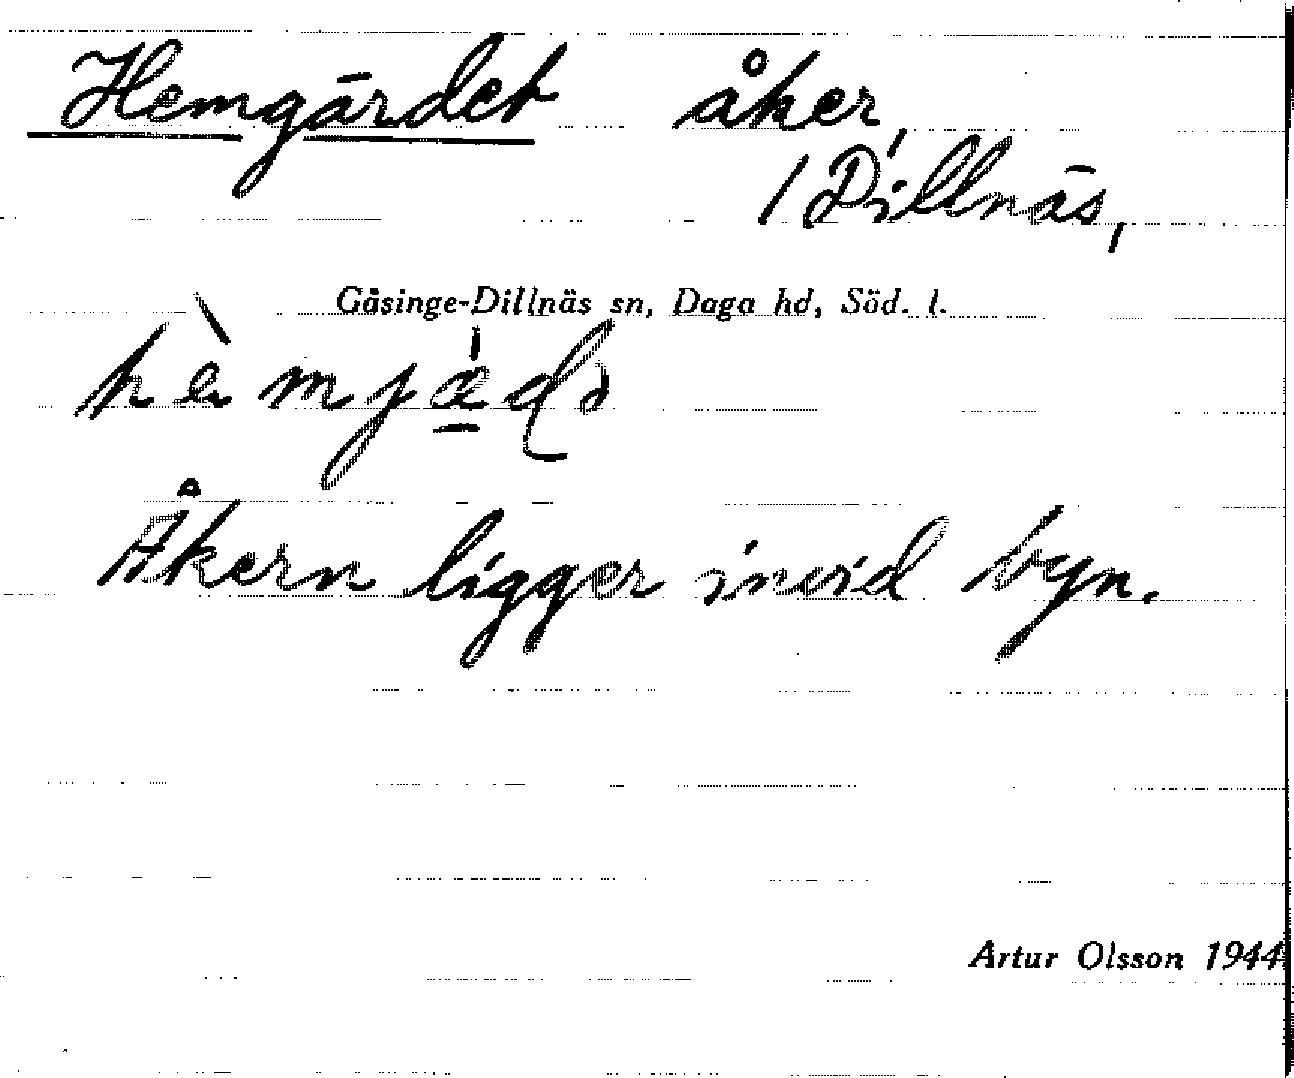 Hemgärdet åker,
/ Dillnäs,
Gåsinge-Dillnäs sn, Daga hd, Söd. l.
Åkern ligger invid byn.
Artur Olsson 1944